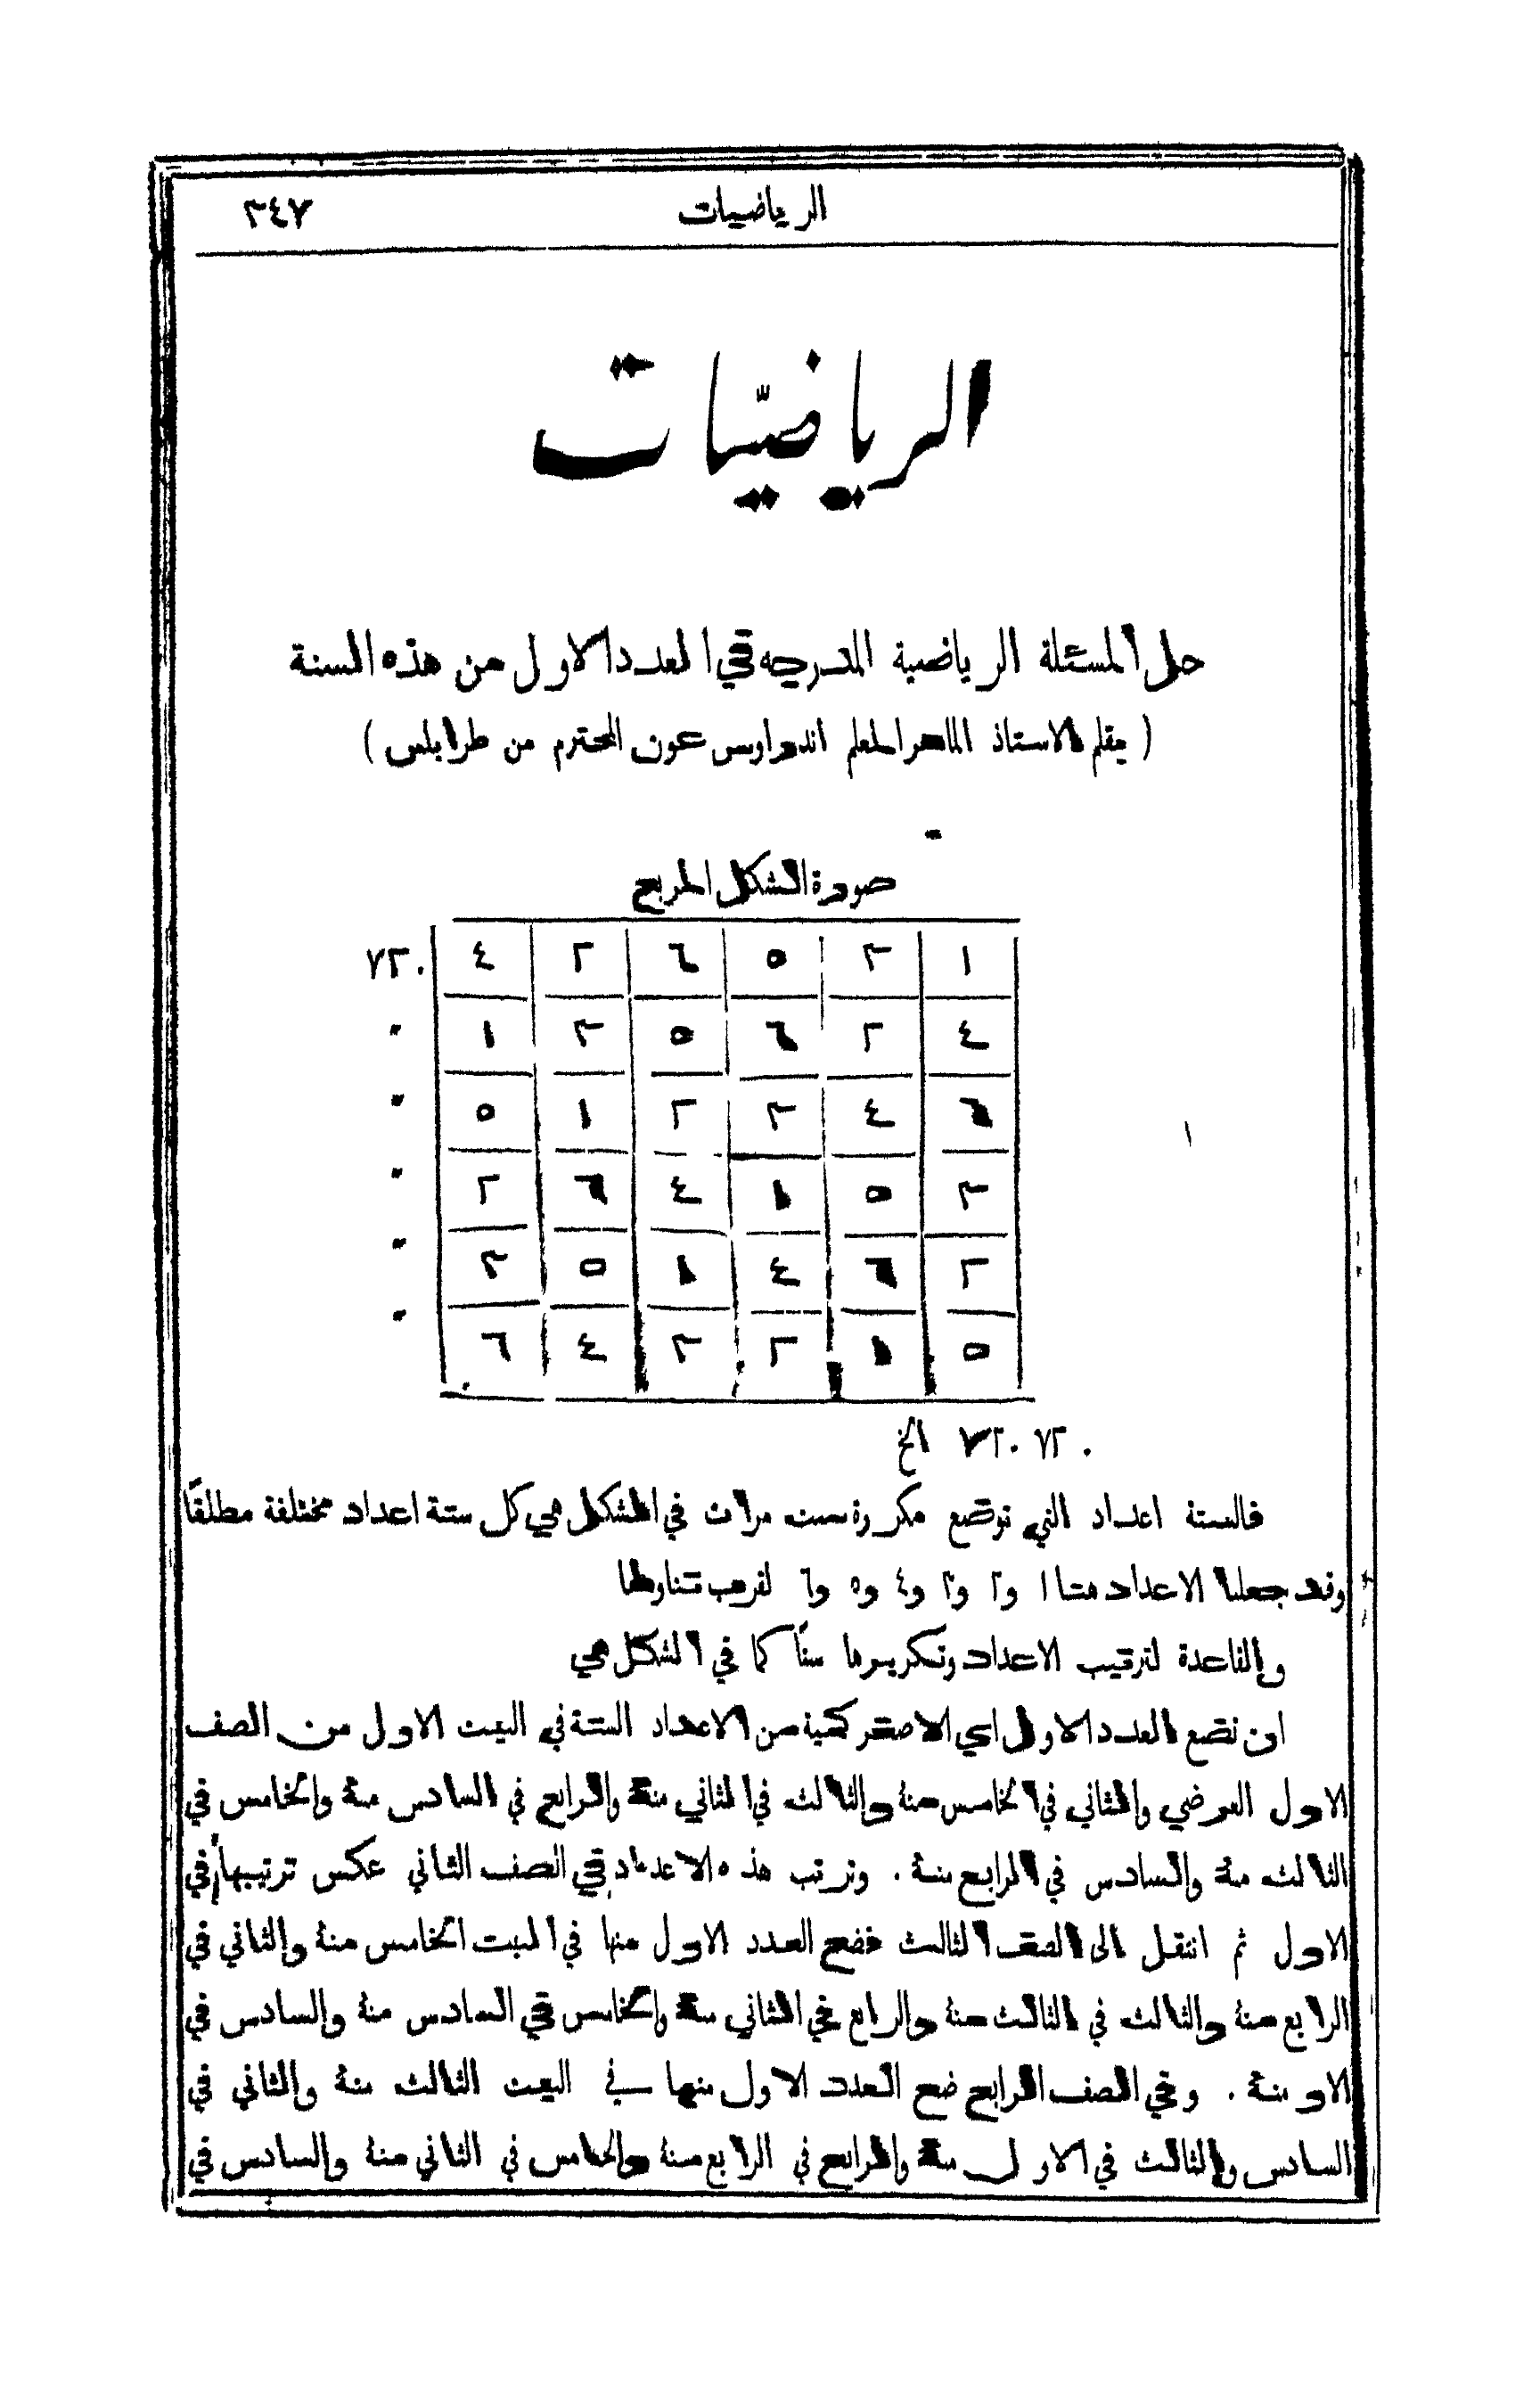 الرياضيات ٣٤٧
الرياضيّات
حل المسئلة الرياضية المدرجه في العدد الاول من هذه السنة
( بقلم الاستاذ الماهر المعلم اندراوس عون المحترم من طرابلس )
صورة الشكل المربع
١ ٣ ٥ ٦ ٢ ٤ ٧٢٠
٤ ٢ ٦ ٥ ٣ ١ "
٦ ٤ ٣ ٢ ١ ٥ "
٣ ٥ ١ ٤ ٦ ٢ "
٢ ٦ ٤ ١ ٥ ٣ "
٥ ١ ٢ ٣ ٤ ٦ "
٧٢٠ ٧٢٠ الخ
فالستة اعداد التي توضع مكررة ست مرات في الشكل هي كل ستة اعداد مختلفة مطلقًا
وقد جعلنا الاعداد هنا ١ و٢ و٣ و٤ و٥ و٦ لقرب تناولها
والقاعدة لترتيب الاعداد وتكريرها ستًا كما في الشكل هي
ان نضع العدد الاول اي الاصغر كمية من الاعداد الستة في البيت الاول من الصف
الاول العرضي والثاني في الخامس منهُ والثالث في الثاني منهُ والرابع في السادس منهُ والخامس في
الثالث منهُ والسادس في الرابع منهُ . وترتب هذه الاعداد في الصف الثاني عكس ترتيبها في
الاول ثم انتقل الى الصف الثالث فضع العدد الاول منها في البيت الخامس منهُ والثاني في
الرابع منهُ والثالث في الثالث منهُ والرابع في الثاني منهُ والخامس في السادس منهُ والسادس في
الاو منهُ . وفي الصف الرابع ضع العدد الاول منها في البيت الثالث منهُ والثاني في
السادس والثالث في الاول منهُ والرابع في الرابع منهُ والخامس في الثاني منهُ والسادس في